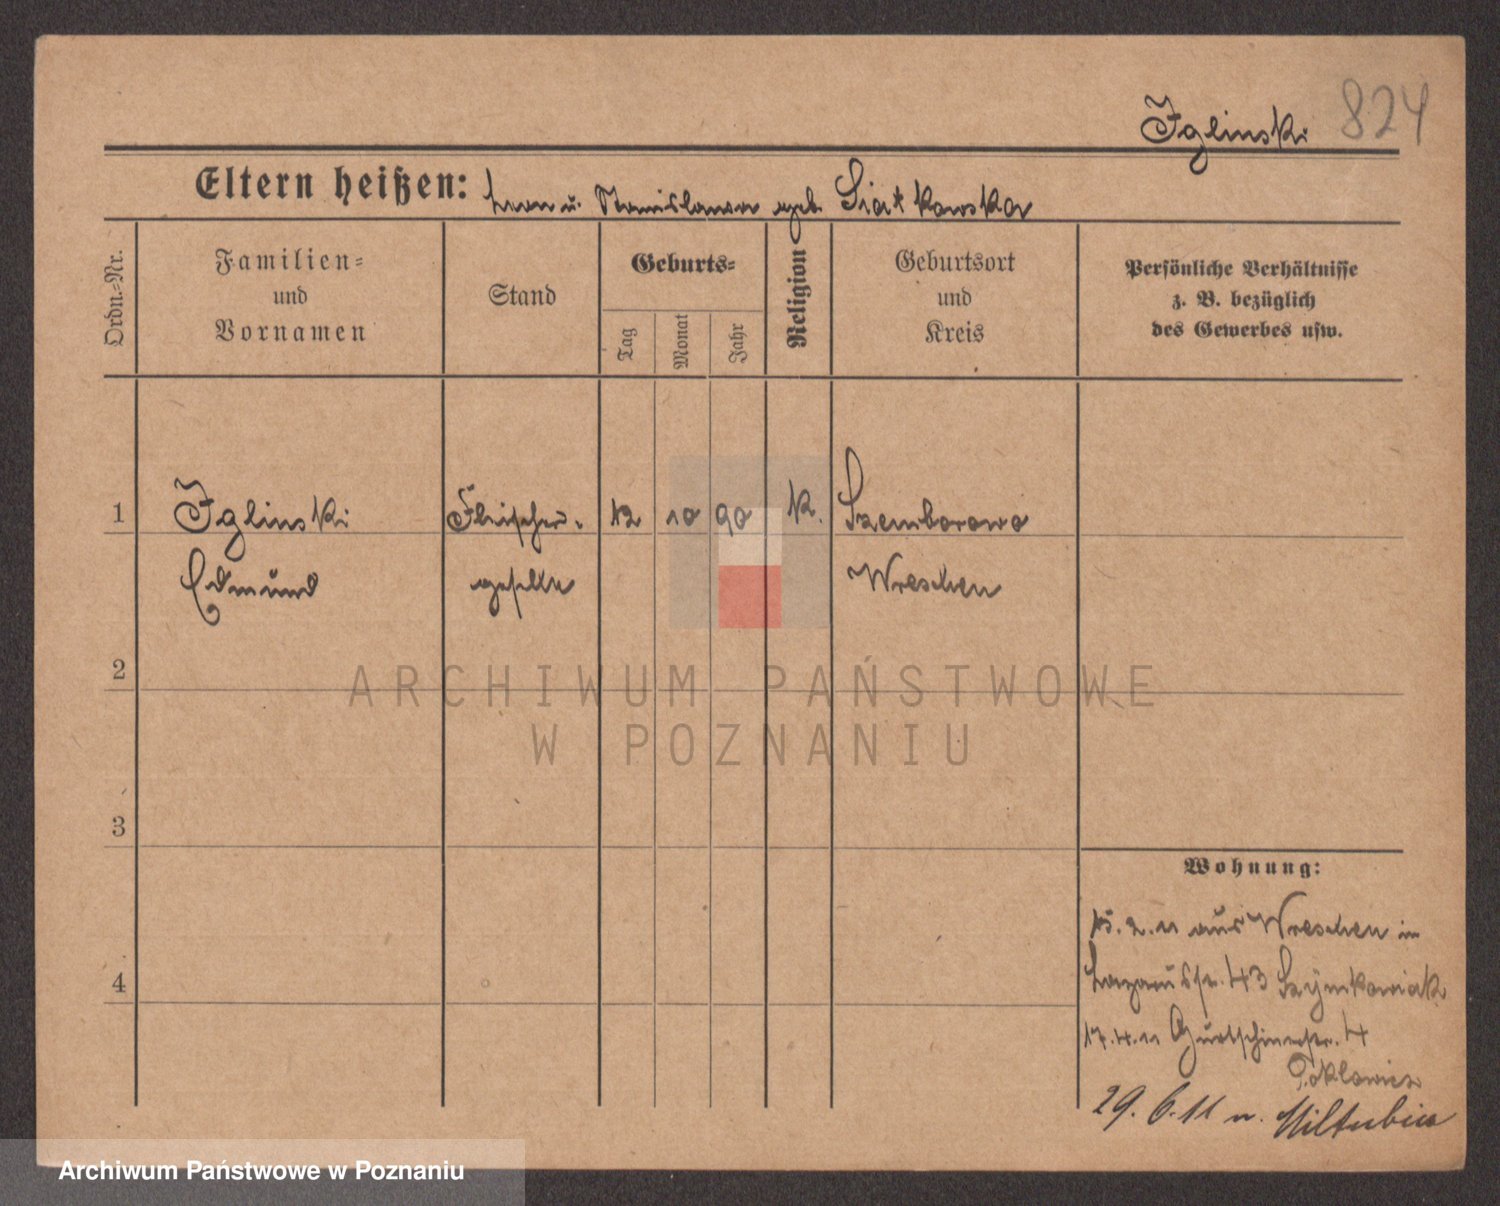 Iglinski 824
Eltern heißen: Leon u. Stanislawa geb. Siatkowska
Ordn.-Nr.
Familien-
und
Vornamen
Stand
Geburts-
Tag
Monat
Jahr
Religion
Geburtsort
und
Kreis
Persönliche Verhältnisse
z. B. bezüglich
des Gewerbes usw.
1 Iglinski Fleischer- 12 10 90 k. Szemborowo
Edmund geselle Wreschen
2
3
4
Wohnung:
15.2.11 aus Wreschen in
Lazarusstr. 43 Szymkowiak
17.4.11 Gurtschinerstr. 4
29.6.11 n.
ARCHIWUM PAŃSTWOWE
W POZNANIU
Archiwum Państwowe w Poznaniu